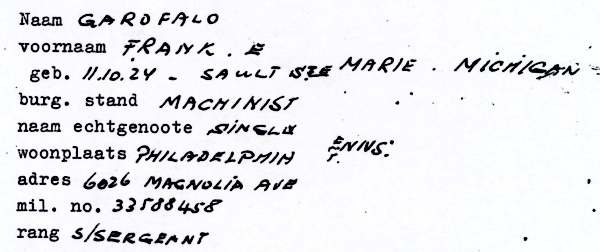 Naam GAROFALO
voornaam FRANK. E
geb. 11.10.24 - SAULT STE MARIE. MICHIGAN
burg. stand MACHINIST
naam echtgenoote SINGLE
woonplaats PHILADELPHIA PENNS:
adres 6026 MAGNOLIA AVE
mil. no. 33588458
rang S/SERGEANT